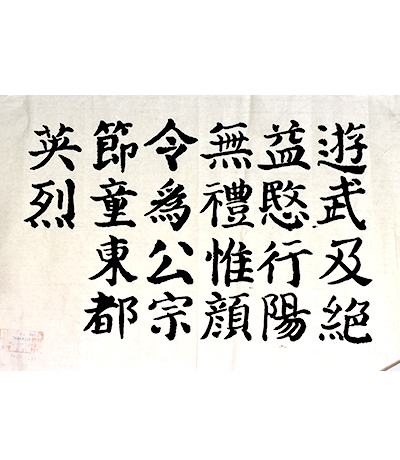 遊武及絕
益愍行陽
無禮惟顔
令為公宗
節童東都
英烈